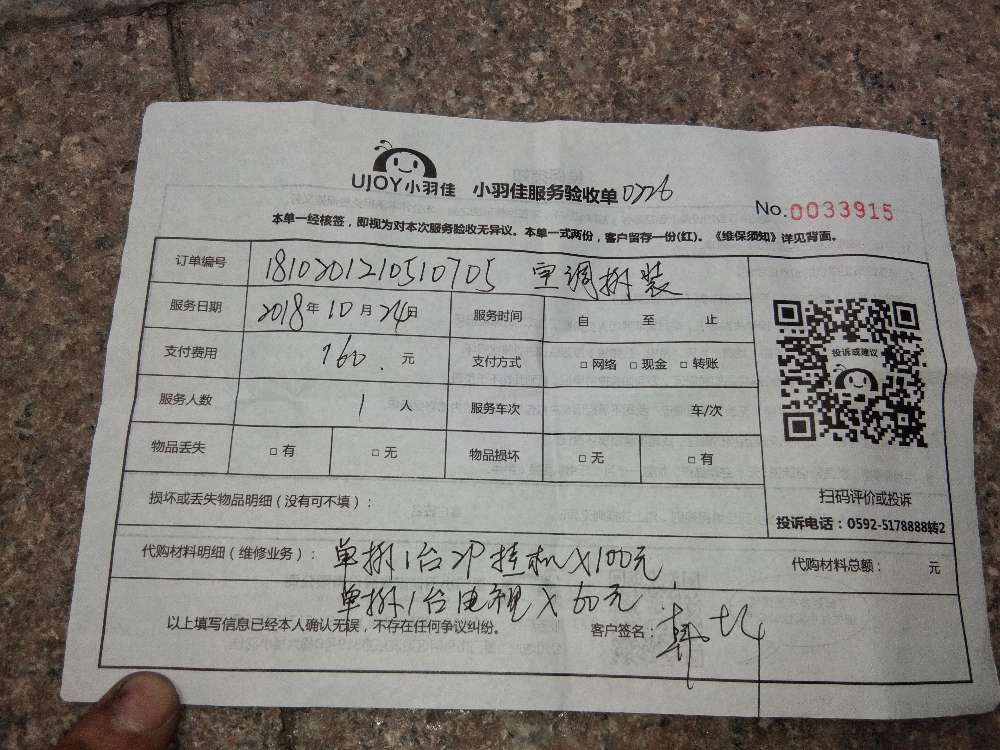 UJOY小羽佳 小羽佳服务验收单 0726
No.0033915
本单一经核签，即视为对本次服务验收无异议。本单一式两份，客户留存一份(红)。《维保须知》详见背面。
订单编号 1810201210510705 空调拆装
服务日期 2018年10月24日 服务时间 自 至 止
支付费用 160. 元 支付方式 □网络 □现金 □转账
服务人数 1 人 服务车次 车/次
物品丢失 □有 □无 物品损坏 □无 □有
投诉或建议
扫码评价或投诉
投诉电话：0592-5178888转2
损坏或丢失物品明细（没有可不填）：
代购材料明细（维修业务）： 单拆1台2P挂机X100元 代购材料总额： 元
单拆1台电视X60元
以上填写信息已经本人确认无误，不存在任何争议纠纷。 客户签名：